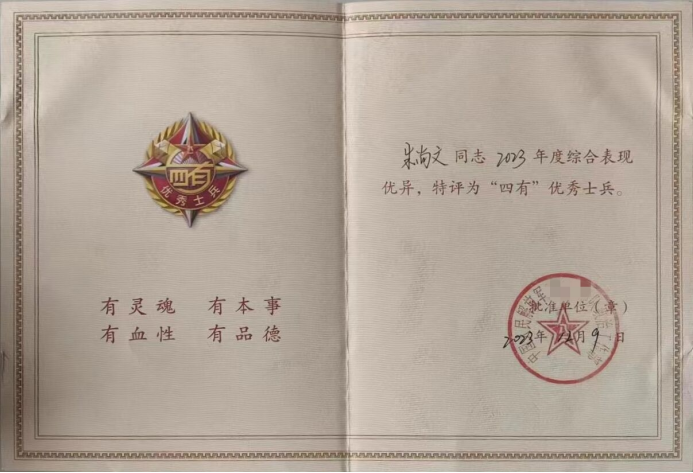 四有
优秀士兵
有灵魂 有本事
有血性 有品德
朱尚文同志2023年度综合表现
优异，特评为“四有”优秀士兵。
批准单位（章）
2023年12月9日
中国人民解放军